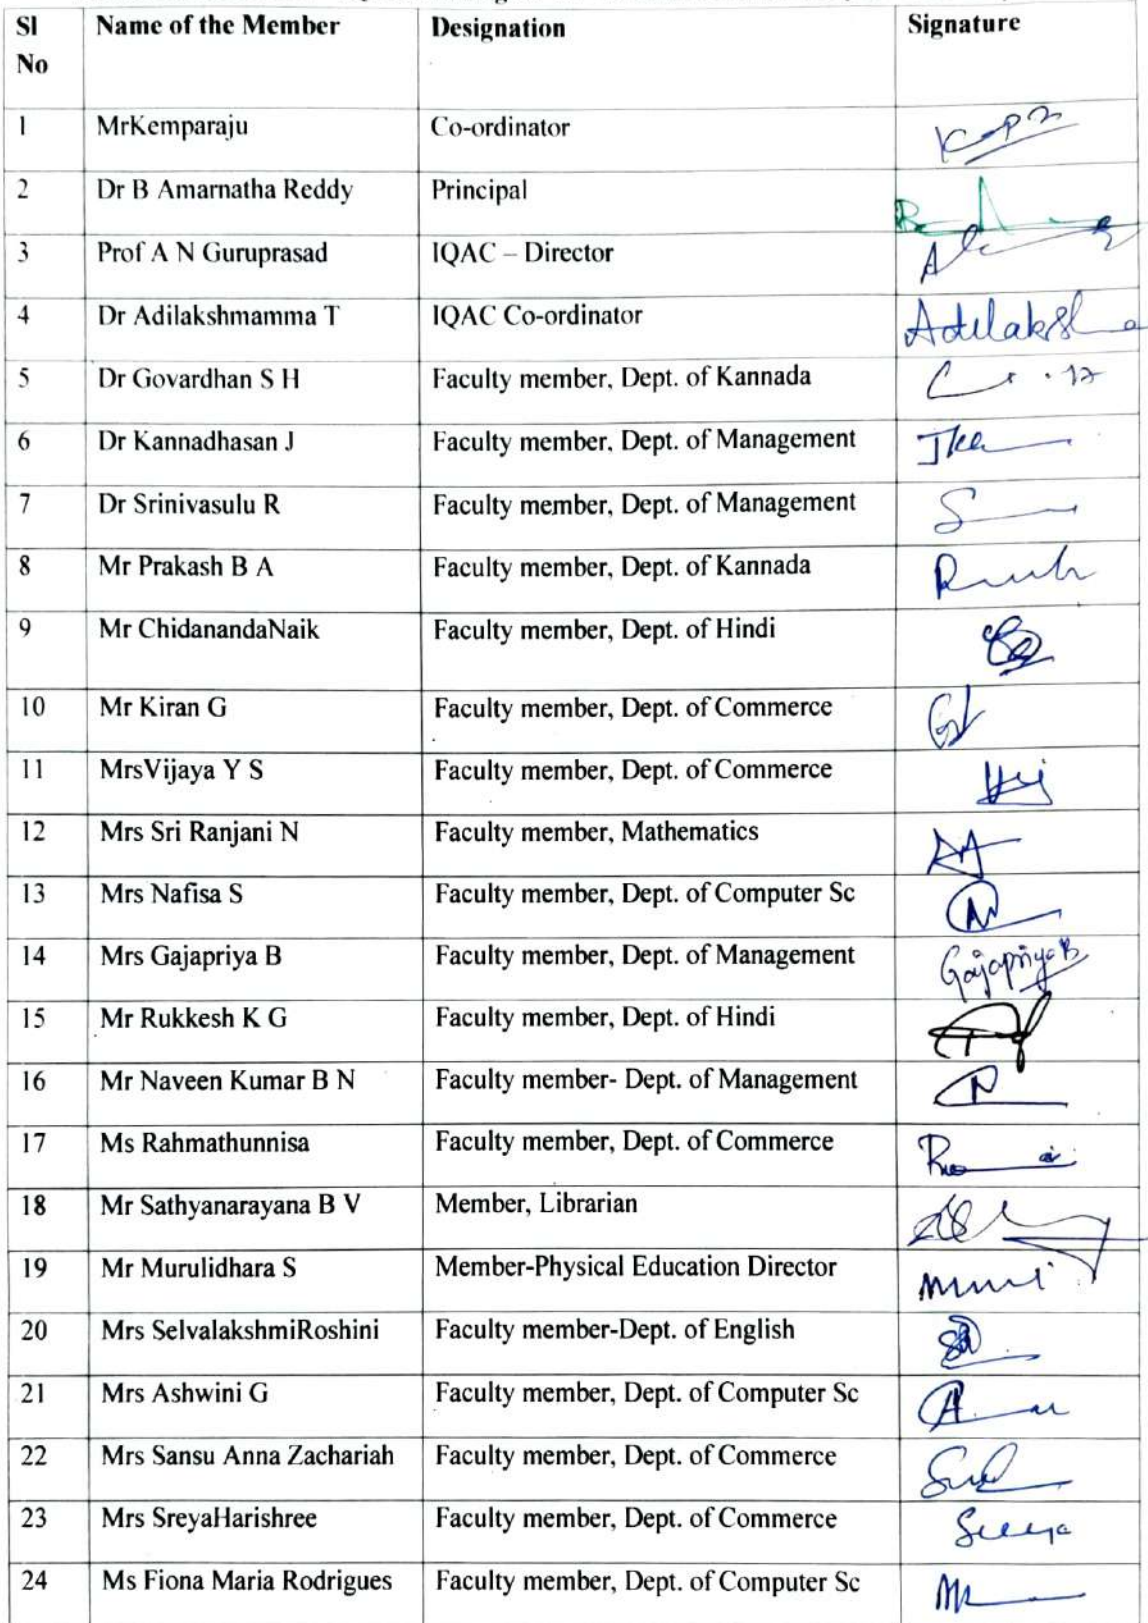 Sl No Name of the Member Designation Signature
1 MrKemparaju Co-ordinator
2 Dr B Amarnatha Reddy Principal
3 Prof A N Guruprasad IQAC – Director
4 Dr Adilakshmamma T IQAC Co-ordinator
5 Dr Govardhan S H Faculty member, Dept. of Kannada
6 Dr Kannadhasan J Faculty member, Dept. of Management
7 Dr Srinivasulu R Faculty member, Dept. of Management
8 Mr Prakash B A Faculty member, Dept. of Kannada
9 Mr ChidanandaNaik Faculty member, Dept. of Hindi
10 Mr Kiran G Faculty member, Dept. of Commerce
11 MrsVijaya Y S Faculty member, Dept. of Commerce
12 Mrs Sri Ranjani N Faculty member, Mathematics
13 Mrs Nafisa S Faculty member, Dept. of Computer Sc
14 Mrs Gajapriya B Faculty member, Dept. of Management Gajapriya B
15 Mr Rukkesh K G Faculty member, Dept. of Hindi
16 Mr Naveen Kumar B N Faculty member- Dept. of Management
17 Ms Rahmathunnisa Faculty member, Dept. of Commerce
18 Mr Sathyanarayana B V Member, Librarian
19 Mr Murulidhara S Member-Physical Education Director
20 Mrs SelvalakshmiRoshini Faculty member-Dept. of English
21 Mrs Ashwini G Faculty member, Dept. of Computer Sc
22 Mrs Sansu Anna Zachariah Faculty member, Dept. of Commerce
23 Mrs SreyaHarishree Faculty member, Dept. of Commerce
24 Ms Fiona Maria Rodrigues Faculty member, Dept. of Computer Sc